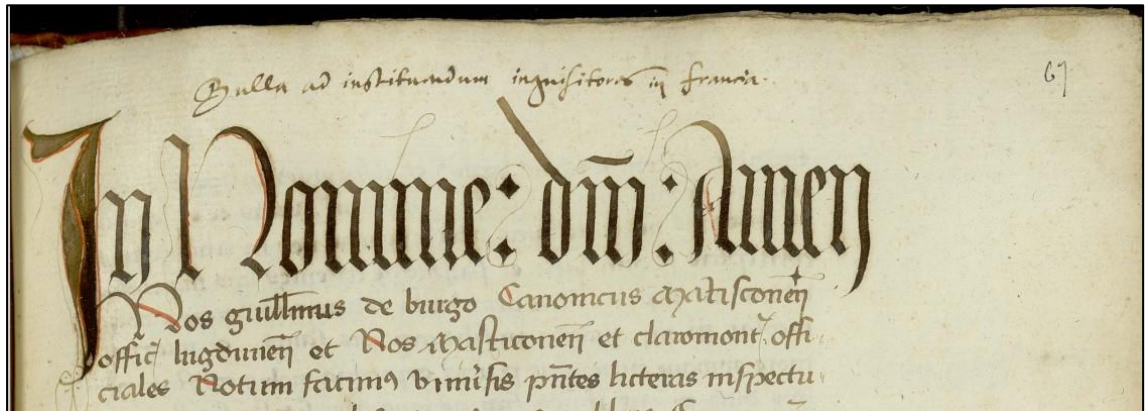 Bulla ad instituendum inquisitores in francia.
67
In Nomine: dm̄: Amen
Nos guill̄mus de burgo Canonicus Matisconen̄
offic̄ lugdunen̄ et Nos Masticonen̄ et claromont̄ offi
ciales Notum facimꝰ vniu̾sis pn̄tes licteras inspectu